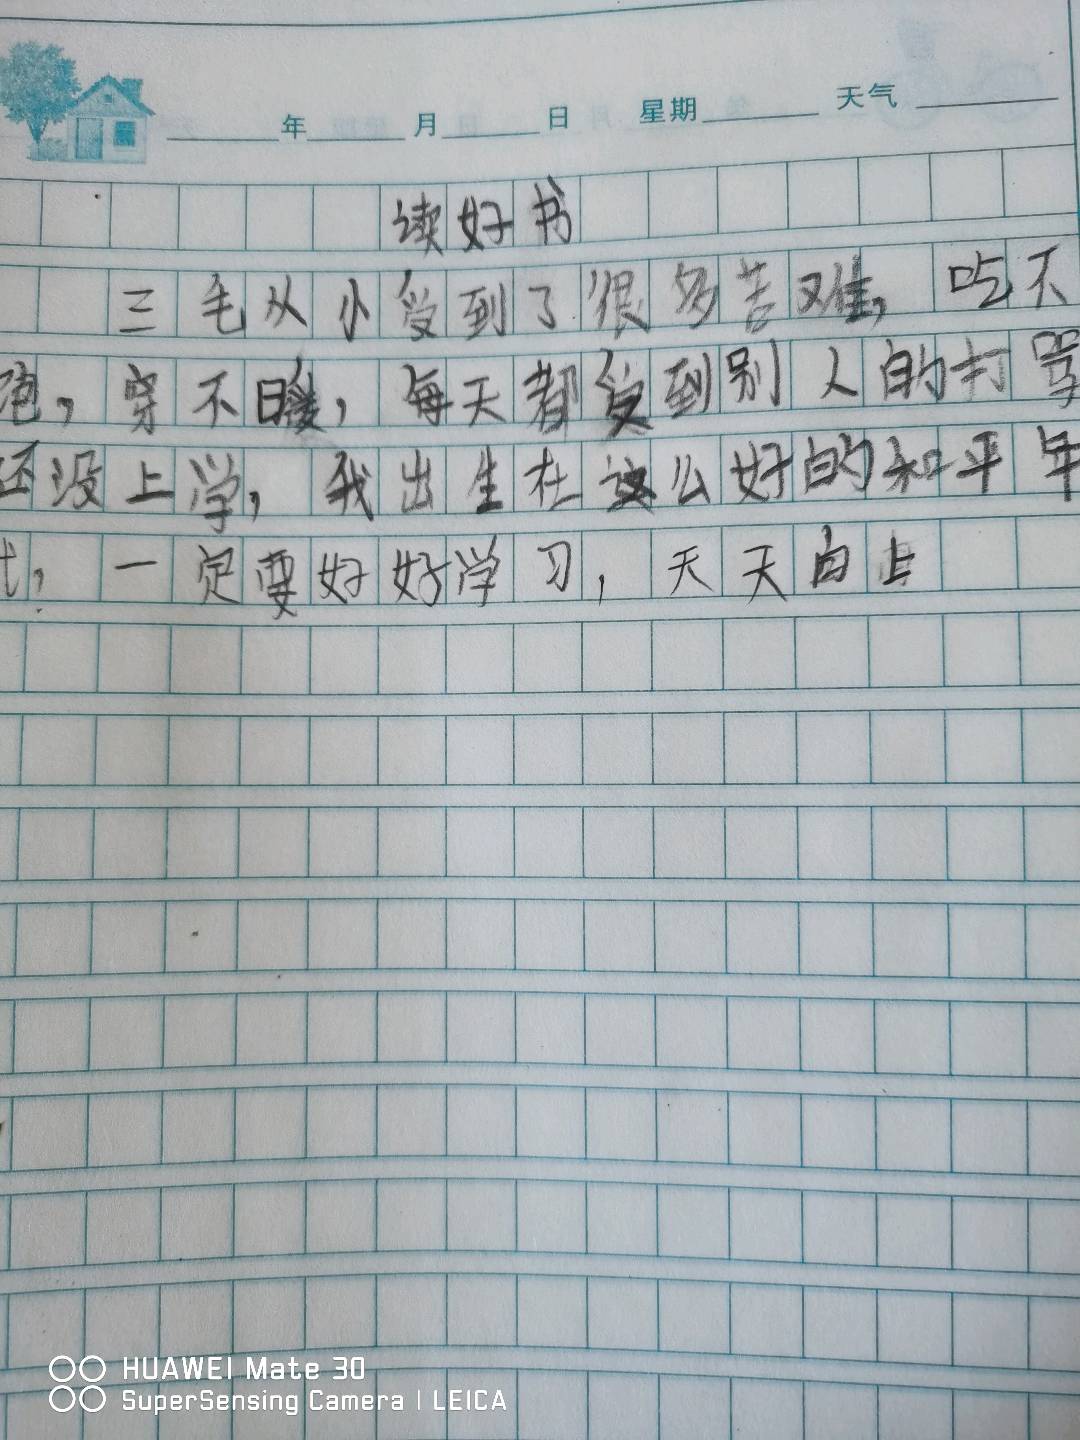 年 月 日 星期 天气
读好书
三毛从小受到了很多苦难，吃不
饱，穿不暖，每天都受到别人的打骂
还没上学，我出生在这么好的和平年
代，一定要好好学习，天天向上
HUAWEI Mate 30
SuperSensing Camera | LEICA